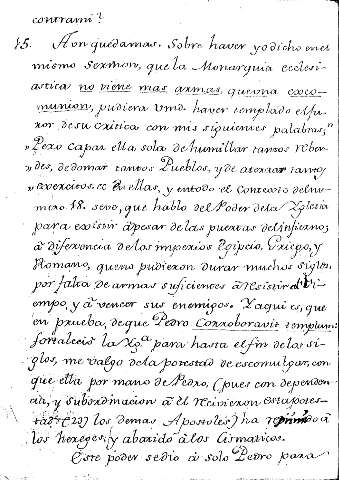 contra mi?
15. Aon quedamas. Sobre haver yo dicho en el
mismo Sermon, que la Monarquia ecclesi-
astica no viene mas armas, que una exco-
munion, pudiera Vmd. haver templado el fu-
ror de su critica con mis siguientes palabras,"
"Pero capaz ella sola de humillar tantos rebel-
"des, de domar tantos Pueblos, y de aterrar tantos
"exercitos. &c En ellas, y en todo el Contexto del nu-
mero 18. se ve, que hablo del Poder de la Yglesia
para existir à pesar de las puertas del infierno;
à diferencia de los imperios Egipcio, Griego, y
Romano, que no pudieron durar muchos siglos,
por falta de armas suficientes à resistir el Ti-
empo, y à vencer sus enemigos. Y aqui es, que
en prueba, de que Pedro Corroboravit templum
fortaleciò la Ygª para hasta el fin de los si-
glos, me valgo de la potestad de escomulgar, con
que ella por mano de Pedro, (pues con dependen-
cia, y subordinacion à èl recivieron esta potes-
tad (20) los demas Apostoles) ha
los hereges, y abatido à los Cismaticos.
Este poder se diò à solo Pedro para